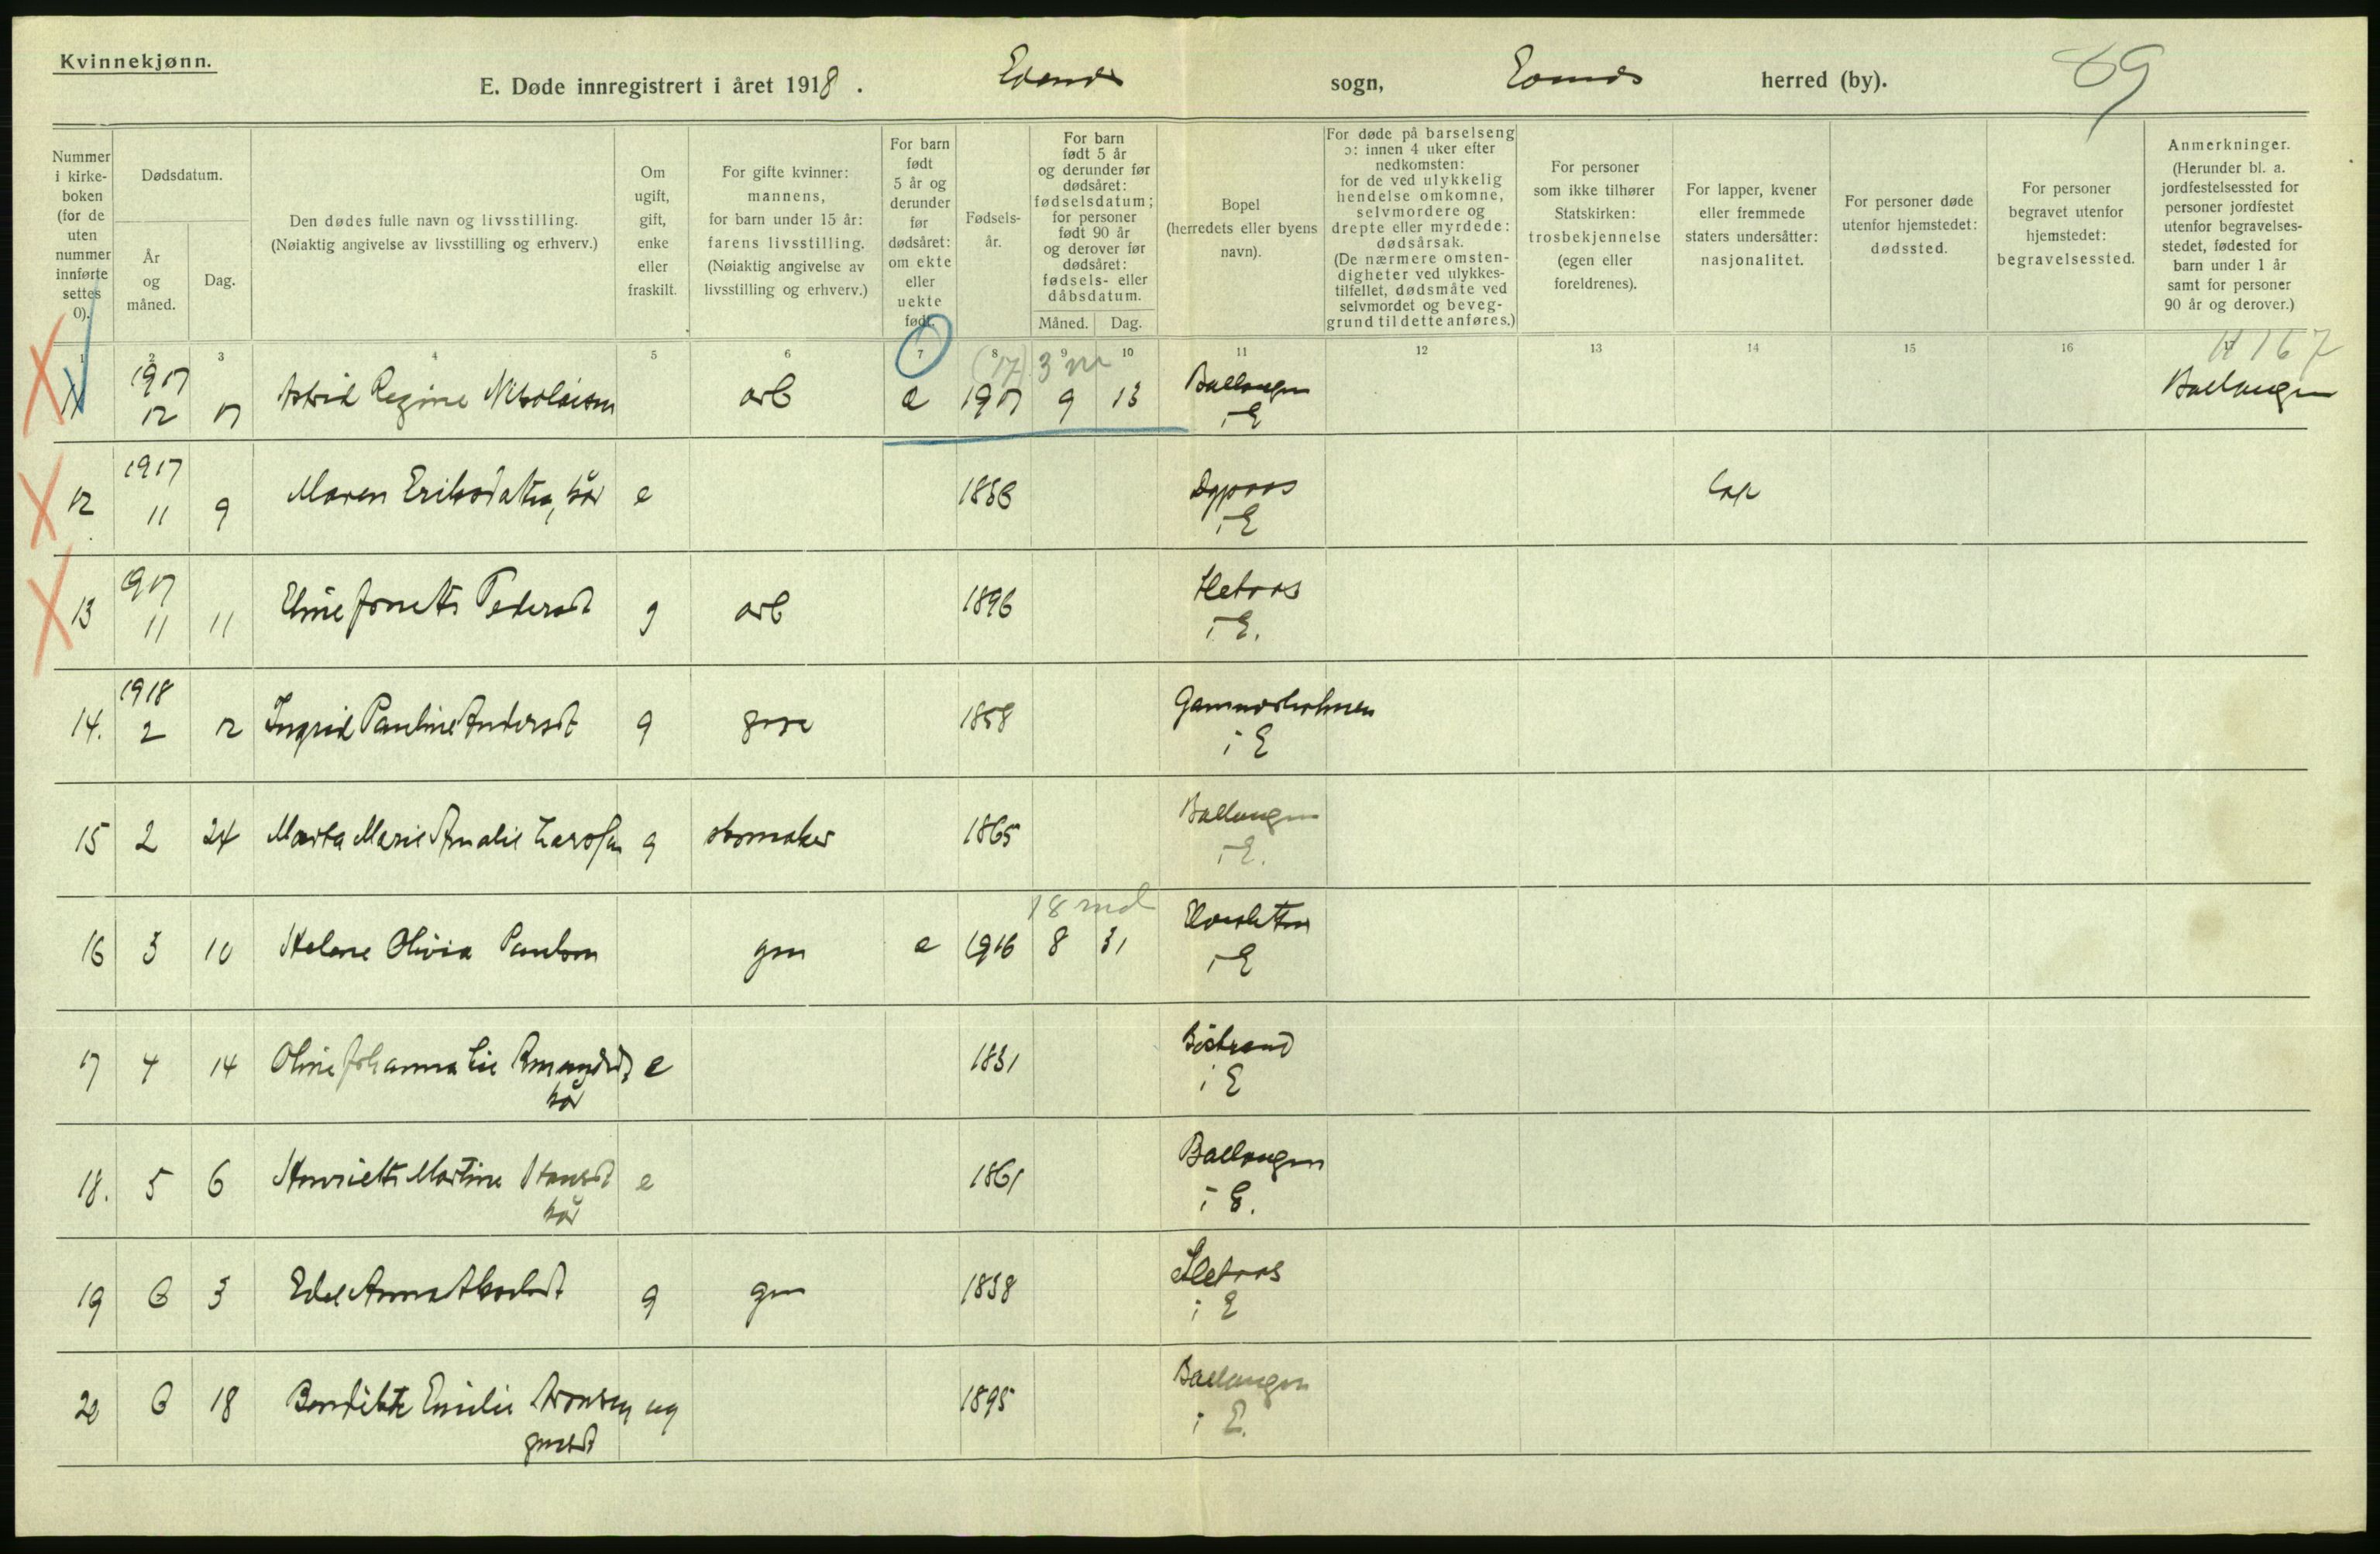 Kvinnekjønn.
E. Døde innregistrert i året 1918. Evenes sogn, Evenes herred (by). 69
Nummer i kirke-boken (for de uten nummer innførte settes 0).
Dødsdatum.
År og måned.
Dag.
Den dødes fulle navn og livsstilling.
(Nøiaktig angivelse av livsstilling og erhverv.)
Om ugift, gift, enke eller fraskilt.
For gifte kvinner: mannens, for barn under 15 år: farens livsstilling. (Nøiaktig angivelse av livsstilling og erhverv.)
For barn født 5 år og derunder før dødsåret: om ekte eller uekte født.
Fødsels-år.
For barn født 5 år og derunder før dødsåret: fødselsdatum; for personer født 90 år og derover før dødsåret: fødsels- eller dåbsdatum.
Måned. Dag.
Bopel (herredets eller byens navn).
For døde på barselseng ɔ: innen 4 uker efter nedkomsten: for de ved ulykkelig hendelse omkomne, selvmordere og drepte eller myrdede: dødsårsak. (De nærmere omsten-digheter ved ulykkes-tilfellet, dødsmåte ved selvmordet og beveg-grund til dette anføres.)
For personer som ikke tilhører Statskirken: trosbekjennelse (egen eller foreldrenes).
For lapper, kvener eller fremmede staters undersåtter: nasjonalitet.
For personer døde utenfor hjemstedet: dødssted.
For personer begravet utenfor hjemstedet: begravelsessted.
Anmerkninger. (Herunder bl. a. jordfestelsessted for personer jordfestet utenfor begravelses-stedet, fødested for barn under 1 år samt for personer 90 år og derover.)
1 2 3 4 5 6 7 8 9 10 11 12 13 14 15 16
(17) 3 m
11 1917 12 17 Astrid Regine Nikolaisen arb e 1917 9 13 Ballangen i E Ballangen
12 1917 11 9 Maren Eriksdatter, kår e Dypaas i E lap
13 1917 11 11 Pedersd g arb 1896 i E.
14. 1918 2 12 Ingrid Pauline Andersd g 1858 Gammesholmen i E
15 2 24 Marta Marie Amalie Larsen g skomaker 1865 Ballangen i E.
18 md
16 3 10 Helene Olivia Paulsen gm e 1916 8 31 i E
17 4 14 Oline Johanna Lie e 1831 Bøstrand i E
kår
18. 5 6 Henriette Martine Hansd e 1861 Ballangen i E.
kår
19 6 3 Edel Anna g gm 1838 i E
20 6 18 Bendikte Emilie Aronsen ug 1895 Ballangen i E.